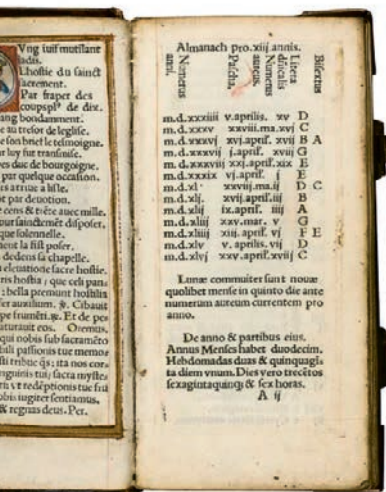 Vng iuif mutilant
ladis.
Lhostie du sainct
acrement.
Par fraper des
coupsplꝰ de dix.
ang bondamment.
e au tresor de leglise.
e son brief le tesmoigne.
r luy fut transmise.
ves duc de bourgoigne.
par quelque occasion.
rs arriue a lisle.
t par deuotion.
e cens & trẽte auec mille.
our sainctemẽt disposer,
que solennelle.
ment la fist poser.
dedens sa chapelle.
n eleuatione sacre hostie.
ris hostia; que celi pan-
: bella premunt hostilia
er auxilium. ℣. Cibauit
pe frumẽti. ℟. Et de pe-
aturauit eos. Oremus.
qui nobis sub sacramẽto
bili passionis tue memo-
sti tribue q̃s; ita nos cor-
guinis tui; sacra myste-
ri vt redẽptionis tue fru
obis iugiter sentiamus.
& regnas deus. Per.
Almanach pro.xiij annis.
Numerus anni.
Pascha.
Numerus aureus.
Litera dñicalis
Bisextus
m.d.xxxiiii v.aprilis. xv D
m.d.xxxv xxviii.ma.xvj C
m.d.xxxvj xvj.aprif. xvij B A
m.d.xxxvij j.aprif. xviij G
m.d.xxxviij xxj.aprif.xix E
m.d.xxxix vj.aprif. j E
m.d.xl xxviij.ma.ij D C
m.d.xlj. xvij.aprif.iij B
m.d.xlij ix.aprif. iiij A
m.d.xliij xxv.mar. v G
m.d.xliiij xiij.aprif. vj F E
m.d.xlv v.aprilis. vij D
m.d.xlvj xxv.aprif.xviij C
Lunæ commuiter sunt nouæ
quolibet mense in quinto die ante
numerum aureum currentem pro
anno.
De anno & partibus eius.
Annus Menses habet duodecim.
Hebdomadas duas & quinquagis
ta diem vnum. Dies vero trecẽtos
sexagintaquinq; & sex horas.
A ij